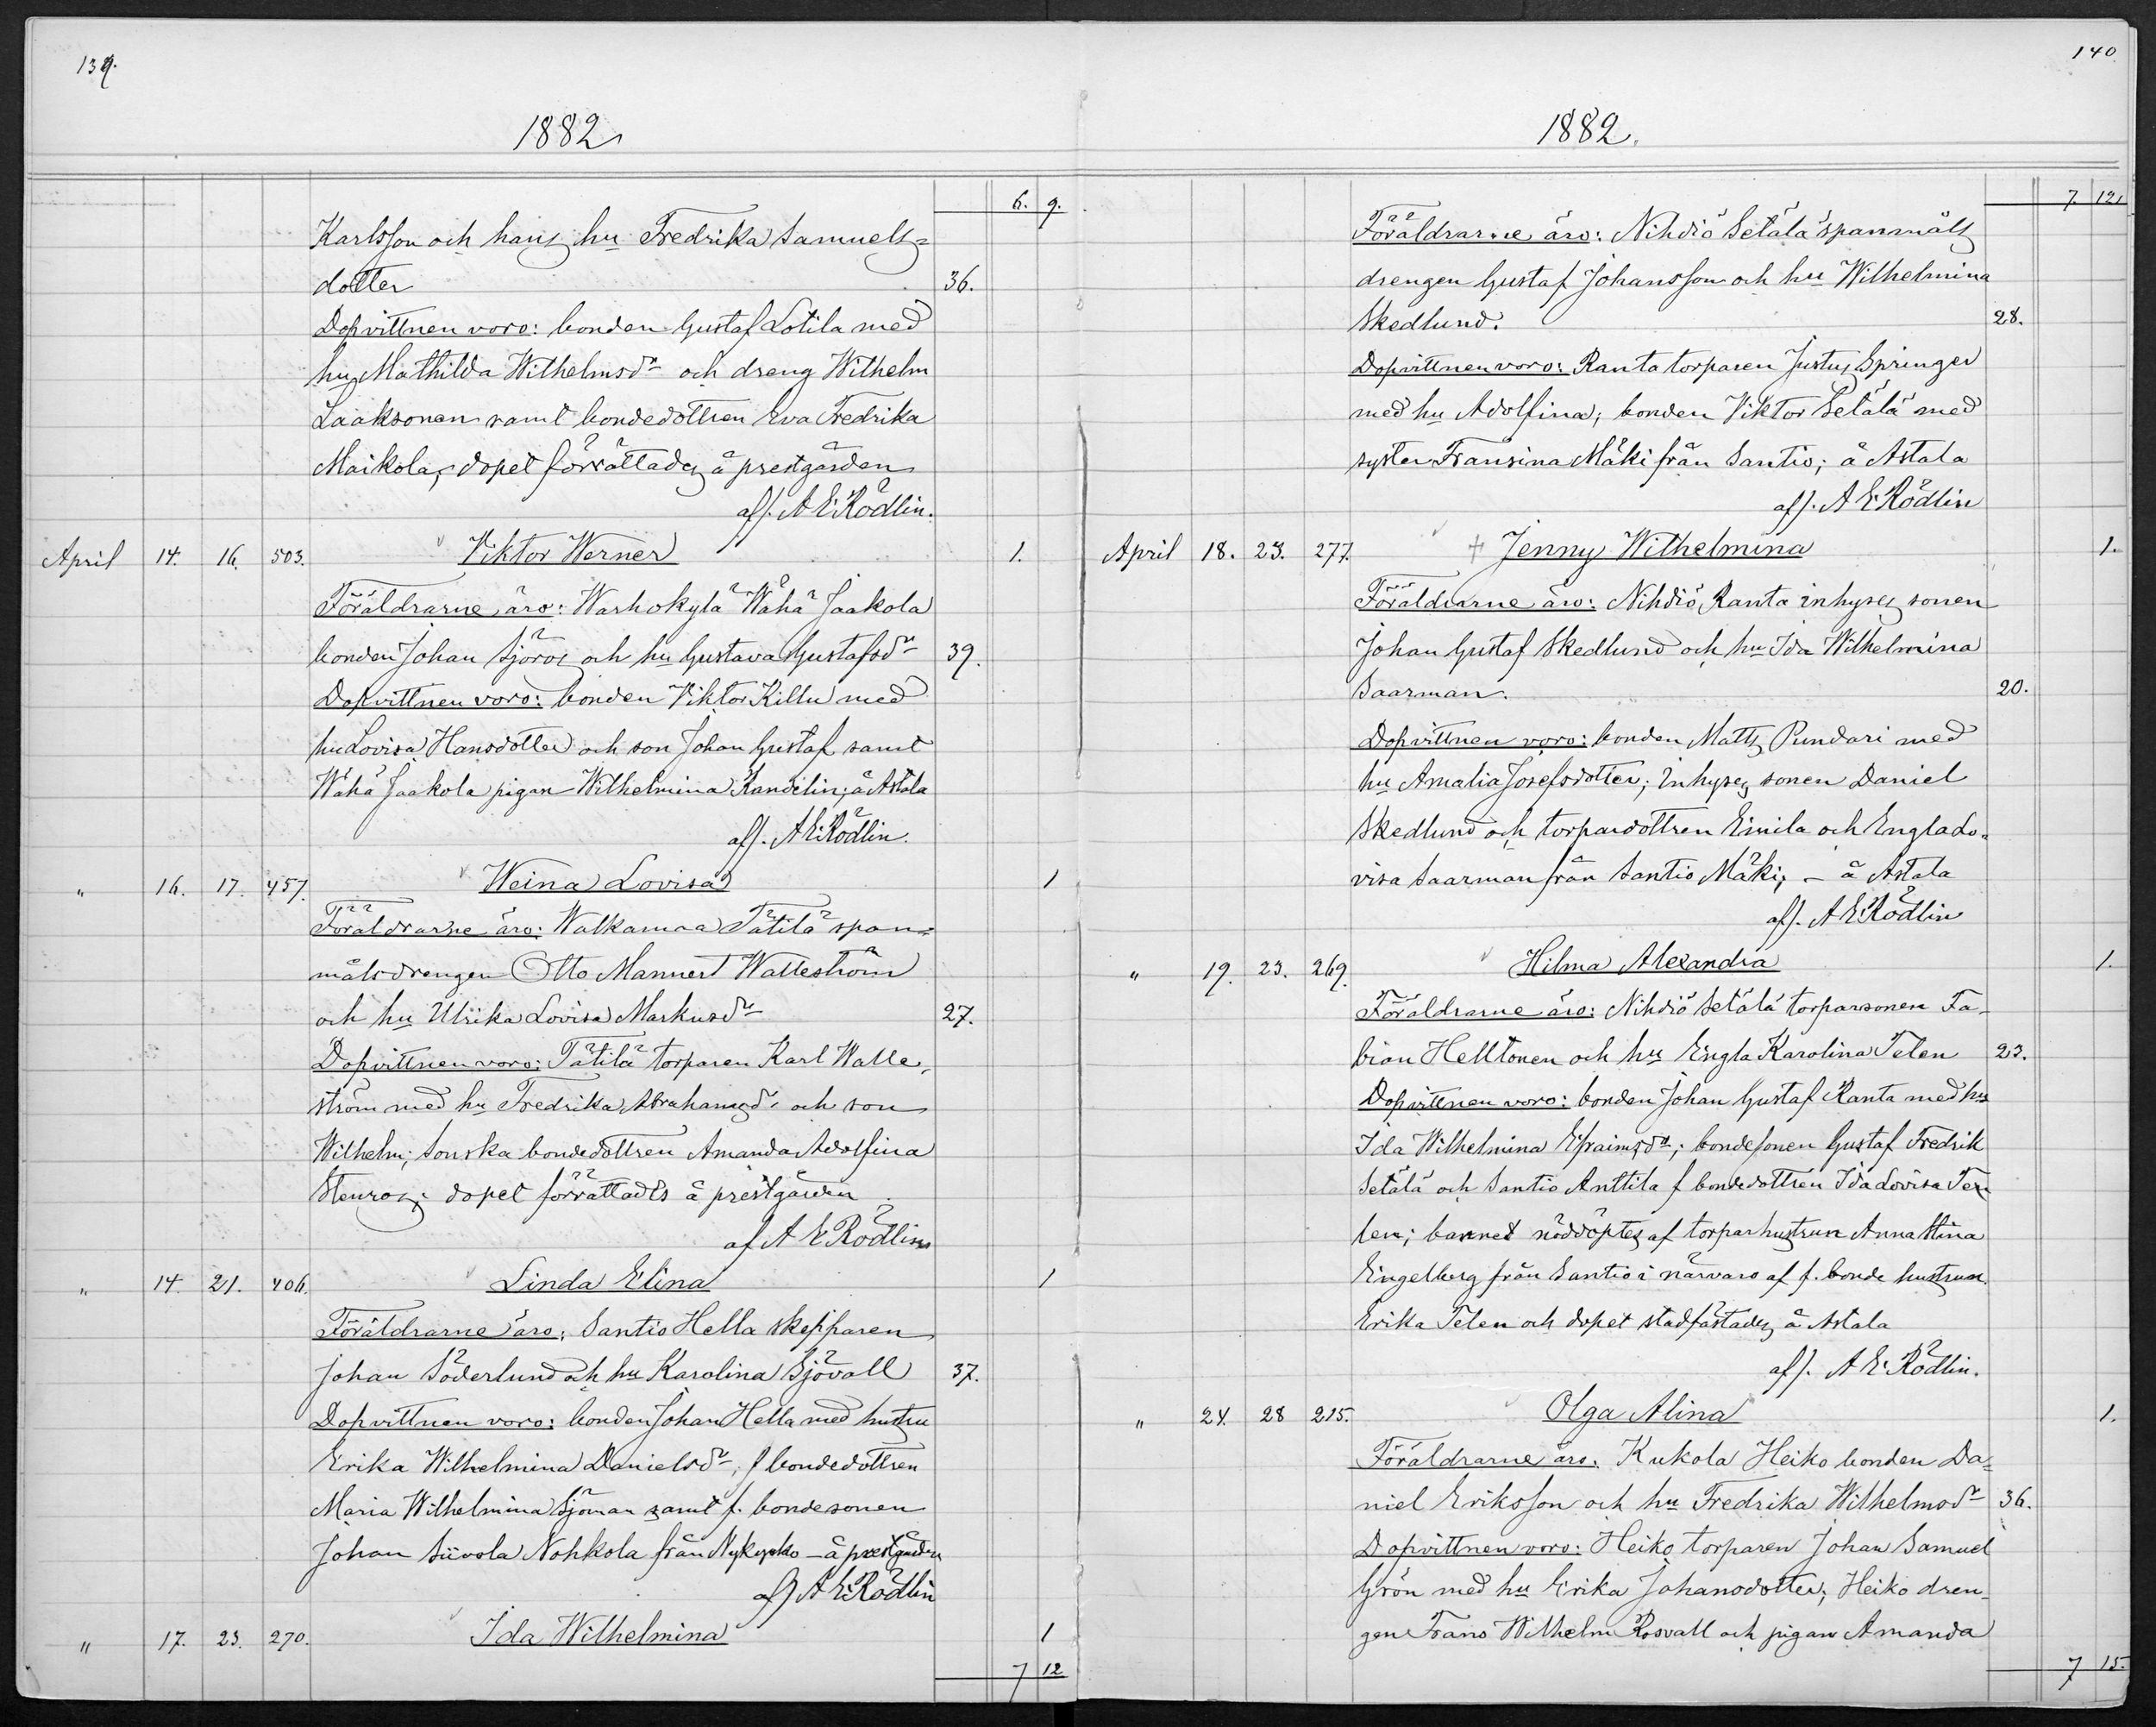 139.
1882
6. 9.
Karlsson och hans hu Fredrika Samuels=
dotter 36.
Dopvittnen voro: bonden Gustaf Lotila med
hu Mathilda Wilhelmsdr och dreng Wilhelm
Laaksonen samt bondedottren Eva Fredrika
Maikola; dopet förrättades å prestgården
af. A E Rödlin.
April 14. 16. 503. Viktor Werner 1.
Föräldrarne äro: Warhokylä Wähä Jaakola
bonden Johan Sjöros och hu Gustava Gustafsdr 39.
Dopvittnen voro: bonden Viktor Killu med
hu Lovisa Hansdotter och son Johan Gustaf samt
Wähä Jaakola pigan Wilhelmina Kandelin; å Astala
af. A E Rödlin.
" 16. 17. 457. Weina Lovisa 1
Föräldrarne äro: Walkamaa Tätilä span=
målsdrengen Otto Mannert Walleström
och hu Ulrika Lovisa Markusdr 27.
Dopvittnen voro: Tätilä torparen Karl Walle,
ström med hu Fredrika Abrahamsdr och son
Wilhelm; Sonska bondedottren Amanda Adolfina
Stenros; dopet förrättades å prestgården
af A E Rödlin
" 14. 21. 406. Linda Elina 1
Föräldrarne äro: Santio Hella skepparen
Johan Söderlund och hu Karolina Sjövall 37.
Dopvittnen voro: bonden Johan Hella med hustru
Erika Wilhelmina Danielsdr, f bondedottren
Maria Wilhelmina Sjöman samt f. bondesonen
Johan Siivola Nohkola från Nykyrko - å prestgården
af A E Rödlin
" 17. 23. 270. Ida Wilhelmina 1
7 12
140
1882.
7. 12.
Föräldrarne äro: Nihdiö Setälä spanmåls
drengen Gustaf Johansson och hu Wilhelmina
Skedlund. 28.
Dopvittnen voro: Ranta torparen Justus Springer
med hu Adolfina; bonden Viktor Setälä med
syster Fransina Mäki från Santio; å Astala
af. A E Rödlin
April 18. 23. 277. † Jenny Wilhelmina 1.
Föräldrarne äro: Nihdiö Ranta inhyses sonen
Johan Gustaf Skedlund och hu Ida Wilhelmina
Saarman. 20.
Dopvittnen voro: bonden Matts Pundari med
hu Amalia Josefsdotter; Inhyses sonen Daniel
Skedlund och torpardottren Emila och Engla Lo=
visa Saarman från Santio Mäki; - å Astala
af. A E Rödlin
" 19. 23. 269. Hilma Alexandra 1.
Föräldrarne äro: Nihdiö Setälä torparsonen Fa-
bian Helltonen och hu Engla Karolina Telen 23.
Dopvittnen voro: bonden Johan Gustaf Ranta med hu
Ida Wilhelmina Efraimsdr; bondesonen Gustaf Fredrik
Setälä och Santio Anttila f bondedottren Ida Lovisa Te
len; barnet nöddöptes af torparhustrun Anna Stina
Engelberg från Santio i närvaro af f. bonde hustrun
Erika Telen och dopet stadfästades å Astala
af. A E Rödlin.
" 24. 28 215. Olga Alina 1.
Föräldrarne äro: Kukola Heiko bonden Da=
niel Eriksson och hu Fredrika Wilhelmsdr 36.
Dopvittnen voro: Heiko torparen Johan Samuel
Grön med hu Erika Johansdotter; Heiko dren-
gen Frans Wilhelm Rosvall och pigan Amanda
7 15.